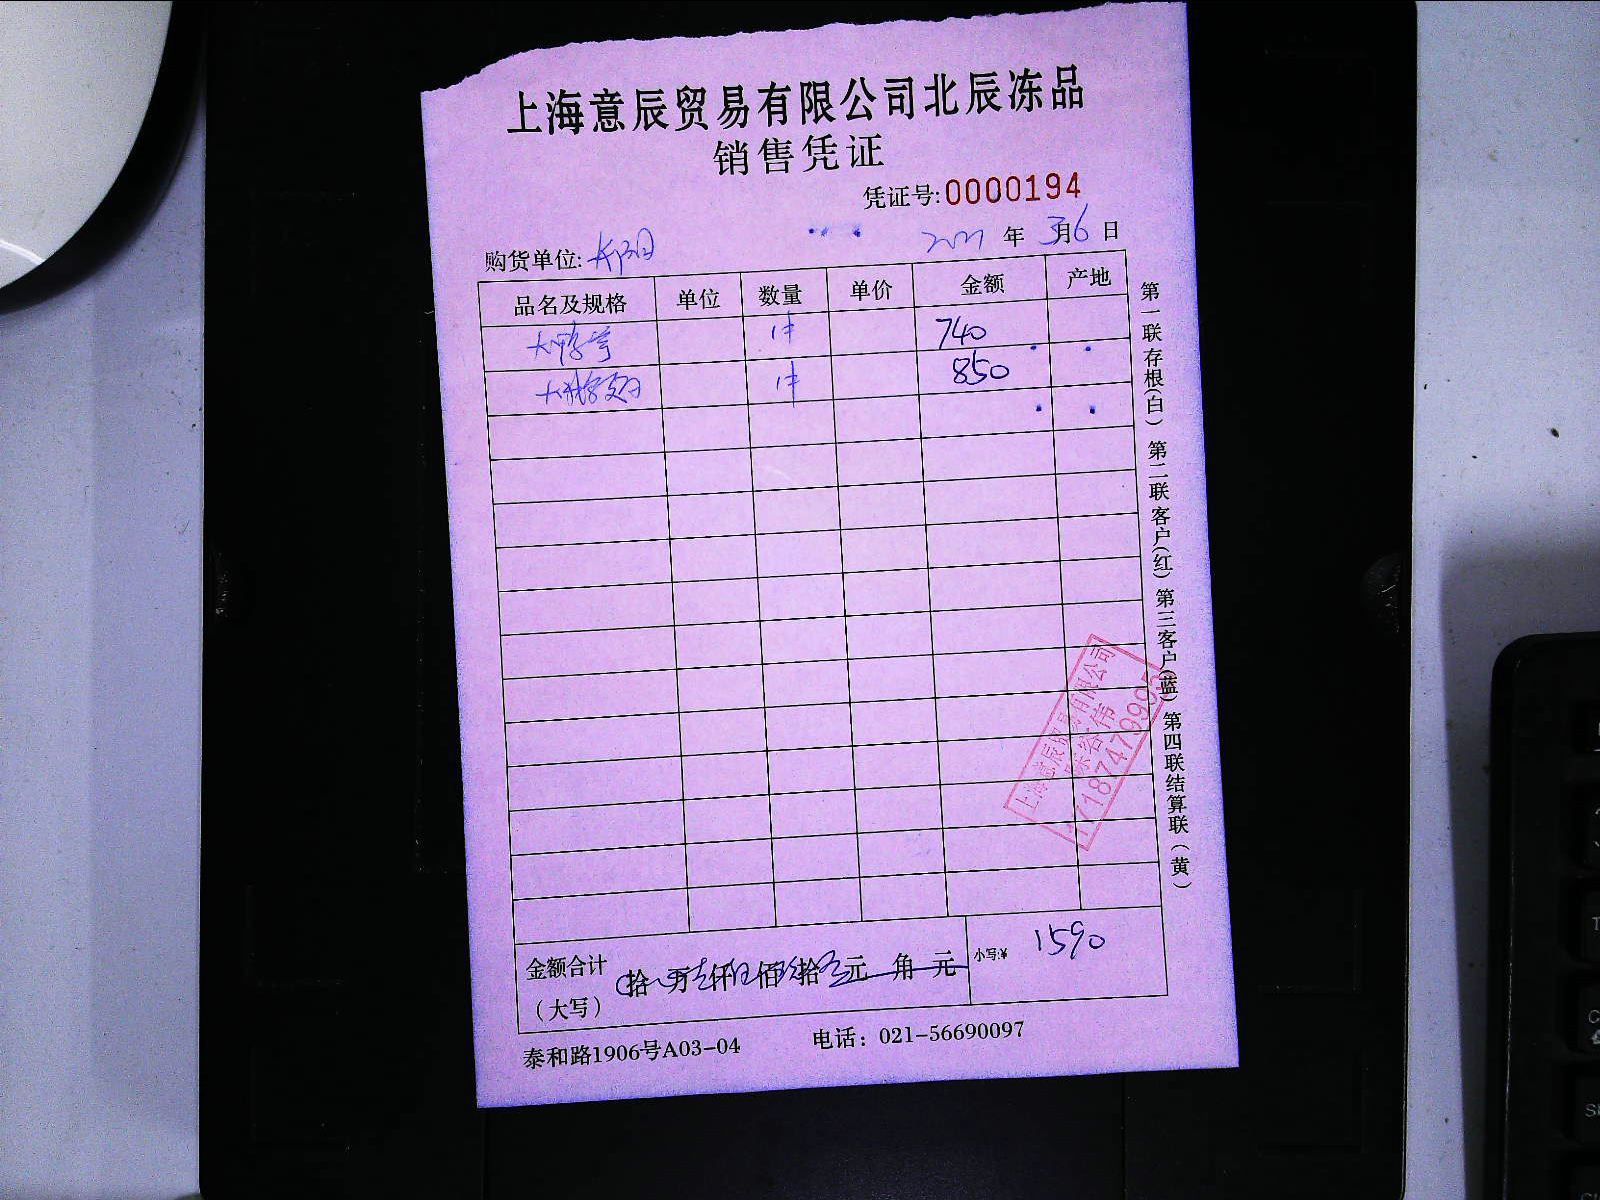 上海意辰贸易有限公司北辰冻品
销售凭证
凭证号:0000194
购货单位: 2021 年 3月6日
品名及规格 单位 数量 单价 金额 产地
大鸭 1件 740
大 1件 850
金额合计 拾 万 仟 佰 拾 元 角 元 小写:¥ 1590
(大写)
泰和路1906号A03-04 电话：021-56690097
第一联存根(白) 第二联客户(红) 第三客户(蓝) 第四联结算联(黄)
上海意辰贸易有限公司